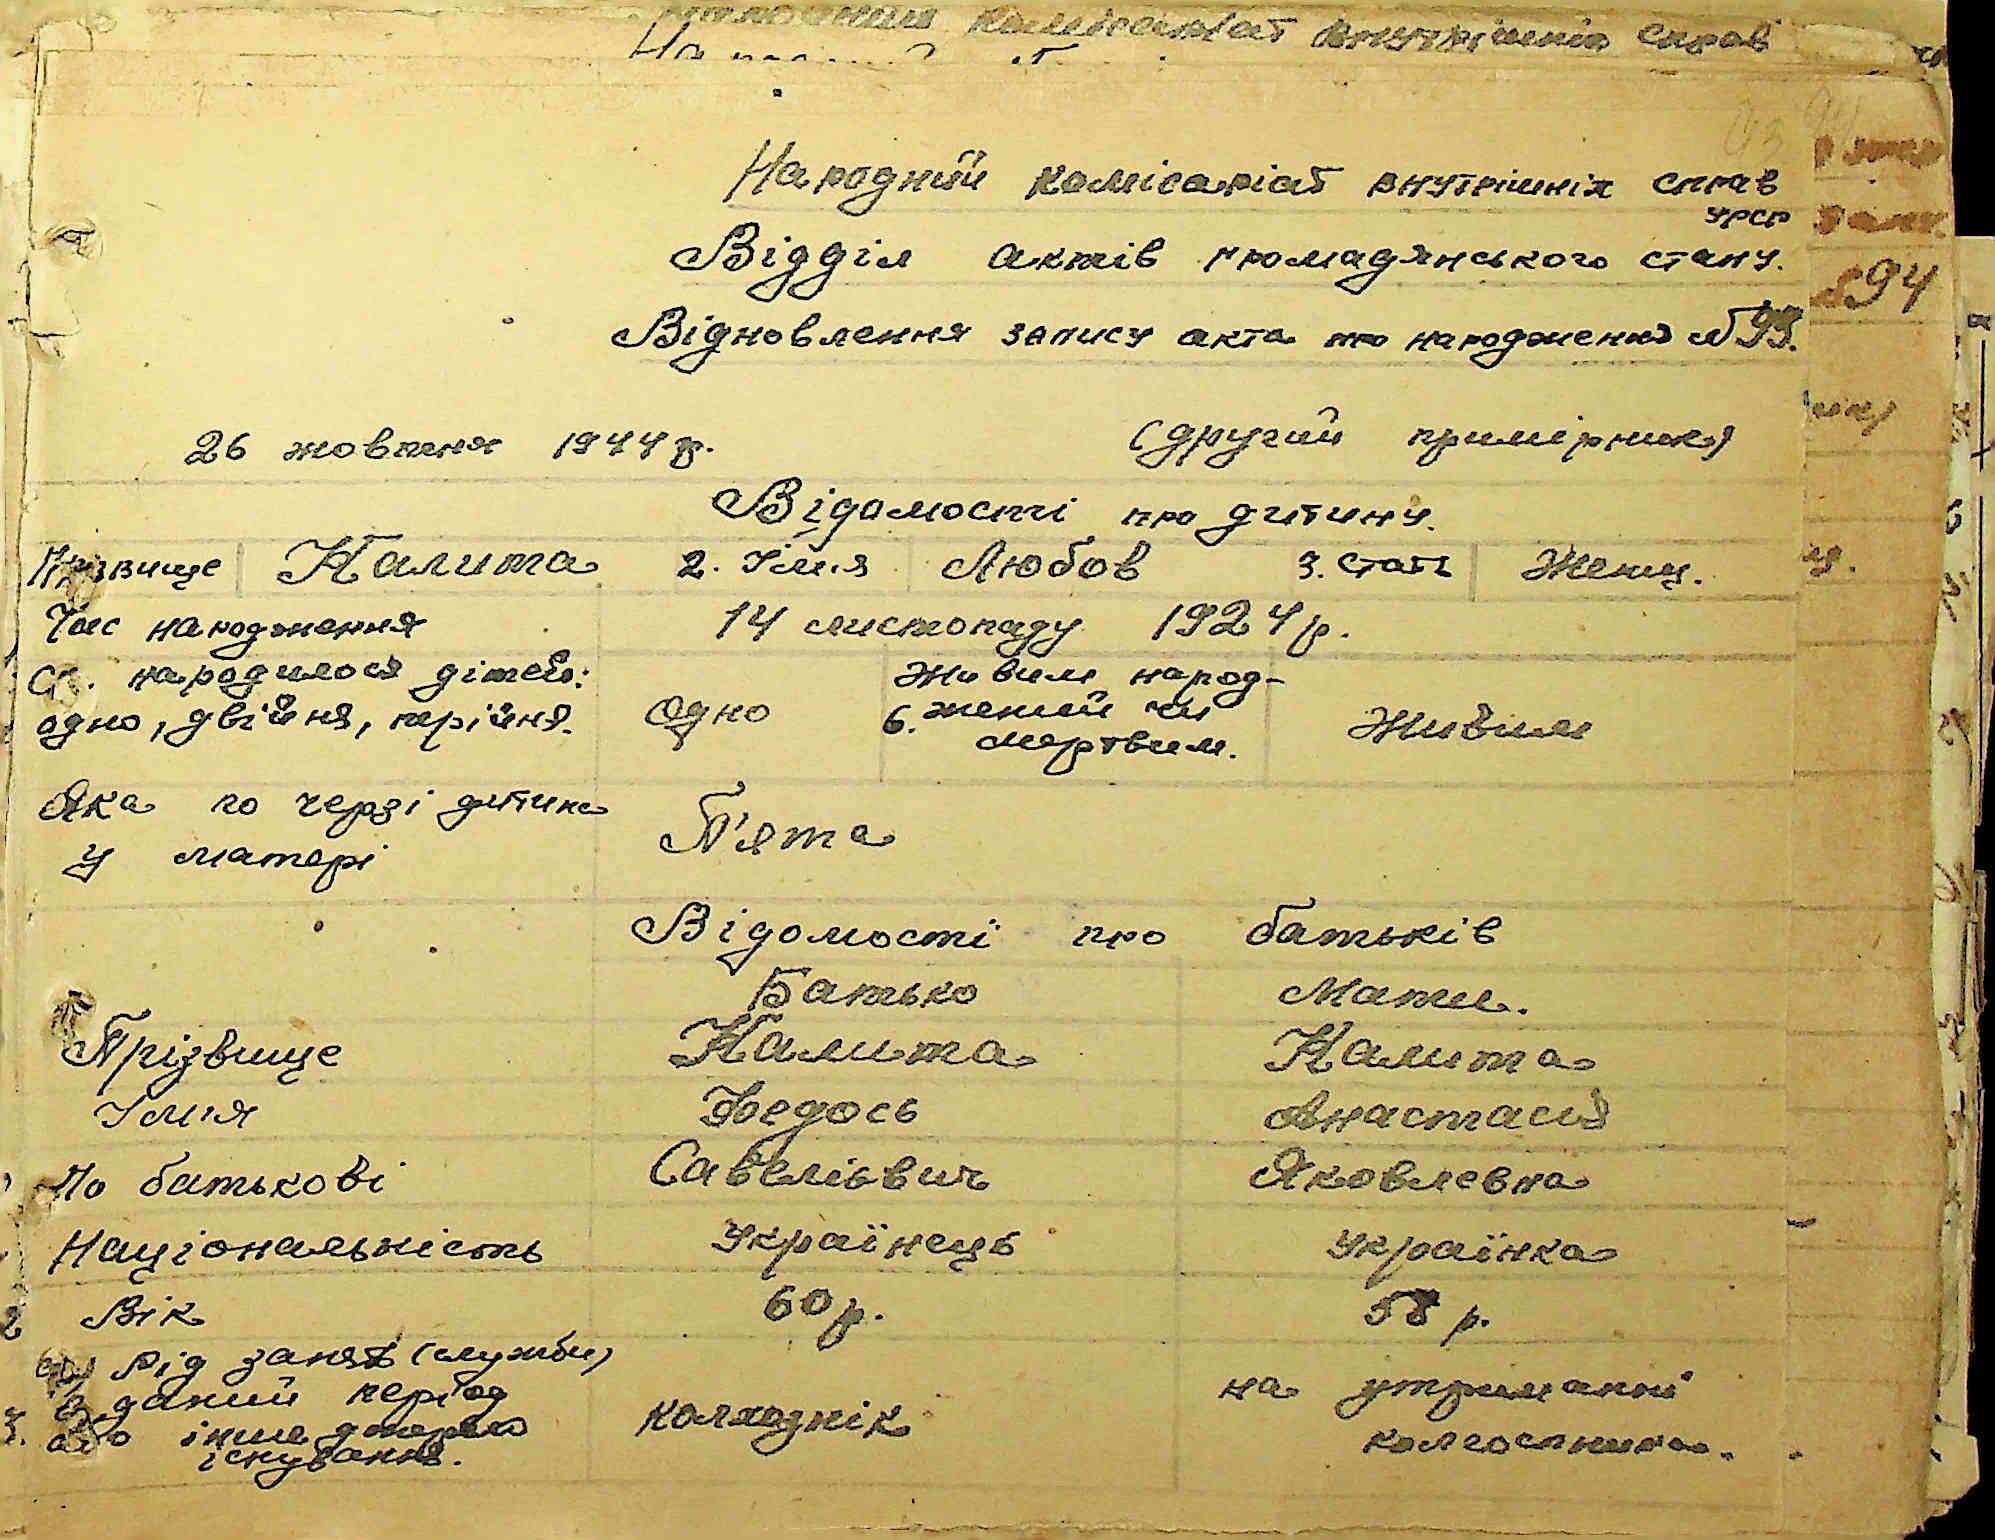 комісаріат внутрішніх справ
Народний комісаріат внутрішніх справ
УРСР
Відділ актів громадянського стану.
Відновлення запису акта про народження № 93.
26 жовтня 1944 р.
(другий примірник)
Відомості про дитину.
Прізвище Калита 2. Ім'я Любов 3. Стать Женщ.
Час народження 14 листопаду 1924 р.
Ск. народилося дітей: одно, двійня, трійня. Одно 6. Живим народженний чи мертвим. Живим
Яка по черзі дитина
у матері П'ята
Відомості про батьків
Батько Мати.
Прізвище Калита Калита
Ім'я Федось Анастасия
По батькові Савелієвич Яковлевна
Національність Українець Українка
Вік 60 р. 58 р.
Рід занять (служби)
в даний період
або інше джерело
існування.
колхознік
на утриманні
колгоспника.
94